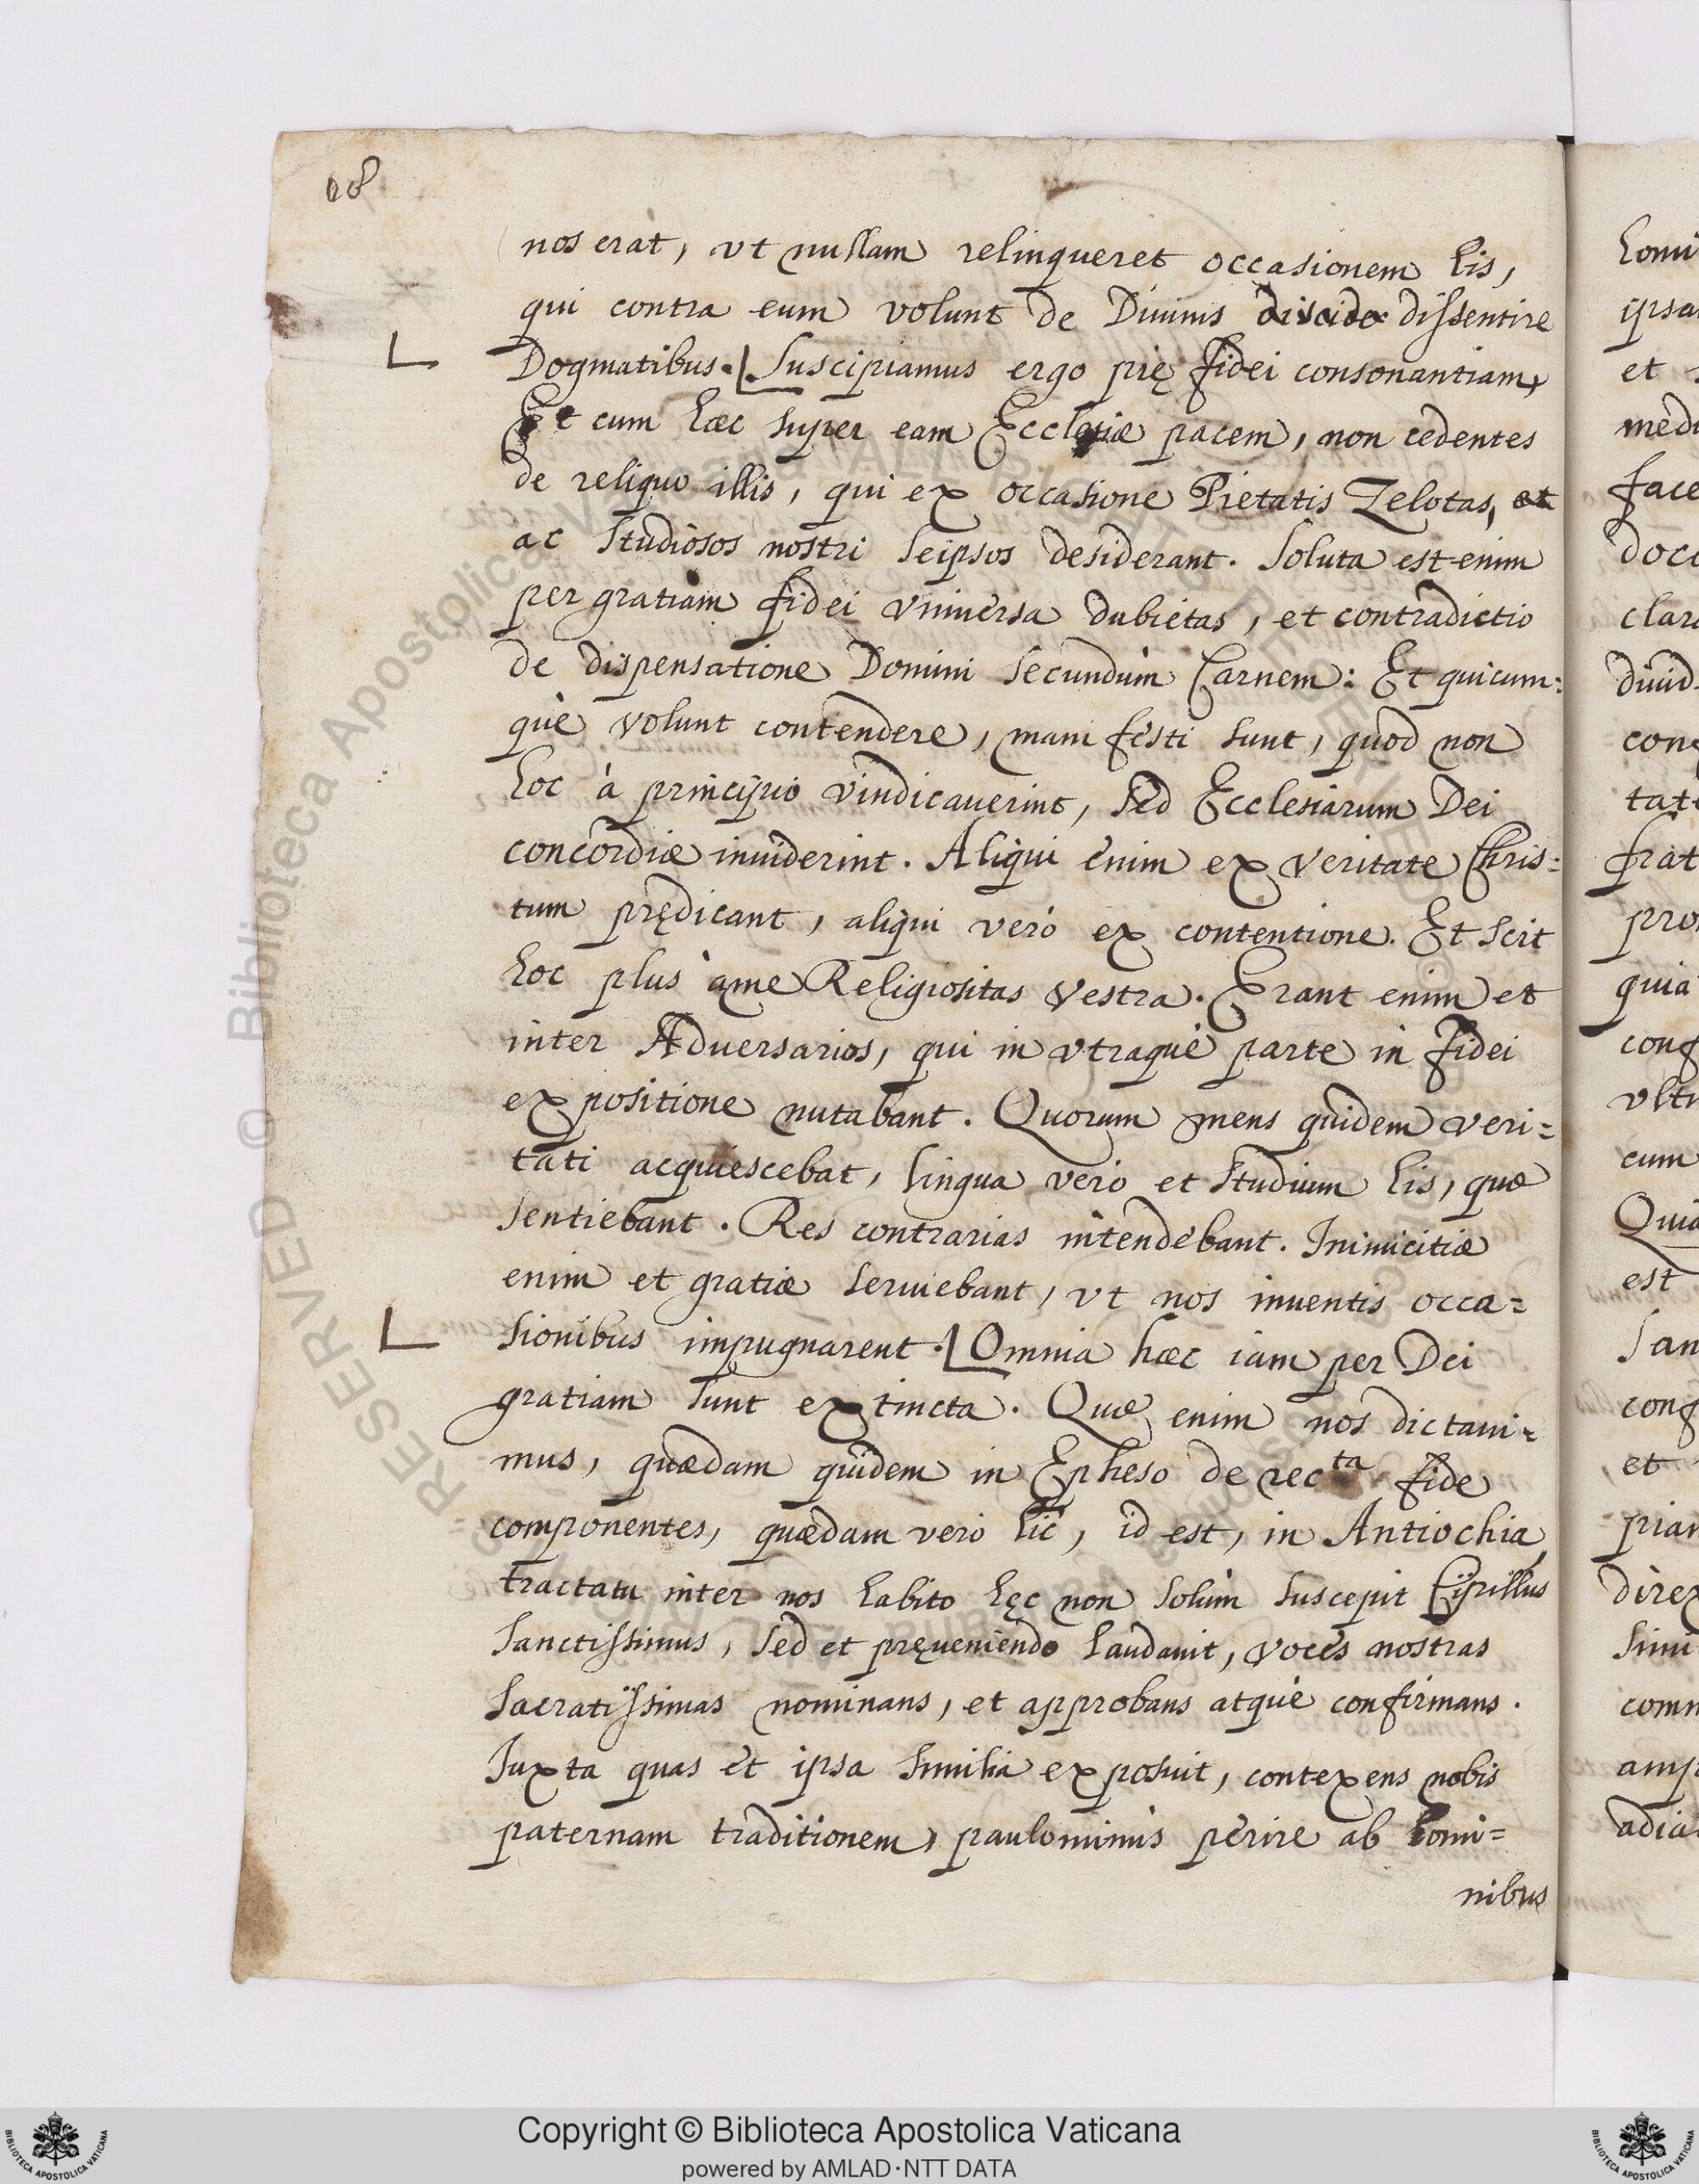 08
nos erat, vt nullam relinqueret occasionem his,
qui contra eum volunt de Diuinis dissentire
Dogmatibus. Suscipiamus ergo pię fidei consonantiam,
Et cum hæc super eam Ecclesiæ pacem, non cedentes
de reliquo illis, qui ex occasione Pietatis Zelotas, et
ac studiosos nostri seipsos desiderant. Soluta est enim
per gratiam fidei vniuersa dubietas, et contradictio
de dispensatione Domini secundùm Carnem: Et quicum=
què volunt contendere, manifesti sunt, quod non
hoc à principio vindicauerint, sed Ecclesiarum Dei
concordiæ inuiderint. Aliqui enim ex veritate Chris=
tum prędicant, aliqui verò ex contentione. Et scit
hoc plus àme Religiositas vestra. Erant enim et
inter Aduersarios, qui in vtraquè parte in fidei
expositione nutabant. Quorum mens quidem veri=
tati acquiescebat, lingua verò et studium his, quæ
sentiebant. Res contrarias intendebant. Inimicitiæ
enim et gratiæ seruiebant, vt nos inuentis occa=
sionibus impugnarent. Omnia hæc iam per Dei
gratiam sunt extincta. Quæ enim nos dictaui=
mus, quædam quidem in Epheso de recta fide
componentes, quædam verò hic, id est, in Antiochia,
tractatu inter nos habito hęc non solùm suscepit Cÿrillus
Sanctissimus, sed et pręueniendo laudauit, voces nostras
Sacratissimas nominans, et approbans atquè confirmans.
Iuxta quas et ipsa similia exposuit, contexens nobis
paternam traditionem, paulominùs perire ab homi=
nibus
homi
ipsa
et
medi
face
doce
clar
diuid
cong
tat
frat
pro
quia
conf
vltr
cum
Quia
est
San
conf
et
pian
direx
simi
comm
amp
adia
© Biblioteca Apostolica Vaticana
Copyright © Biblioteca Apostolica Vaticana
powered by AMLAD·NTT DATA
BIBLIOTECA APOSTOLICA VATICANA
BIBLIOTECA APOSTOLICA VATICANA